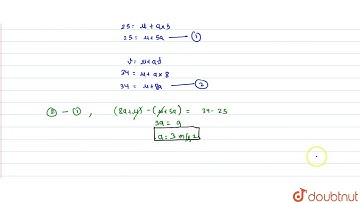 25 = u + a×5
25 = u + 5a —— ①
v = u + at
34 = u + a × 8
34 = u + 8a —— ②
② – ① , (8a + u) – (u + 5a) = 34 - 25
3a = 9
a = 3 m/s2
doubtnut